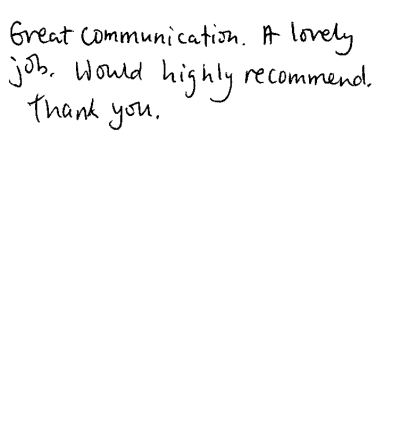 Great communication. A lovely
job. Would highly recommend.
Thank you.